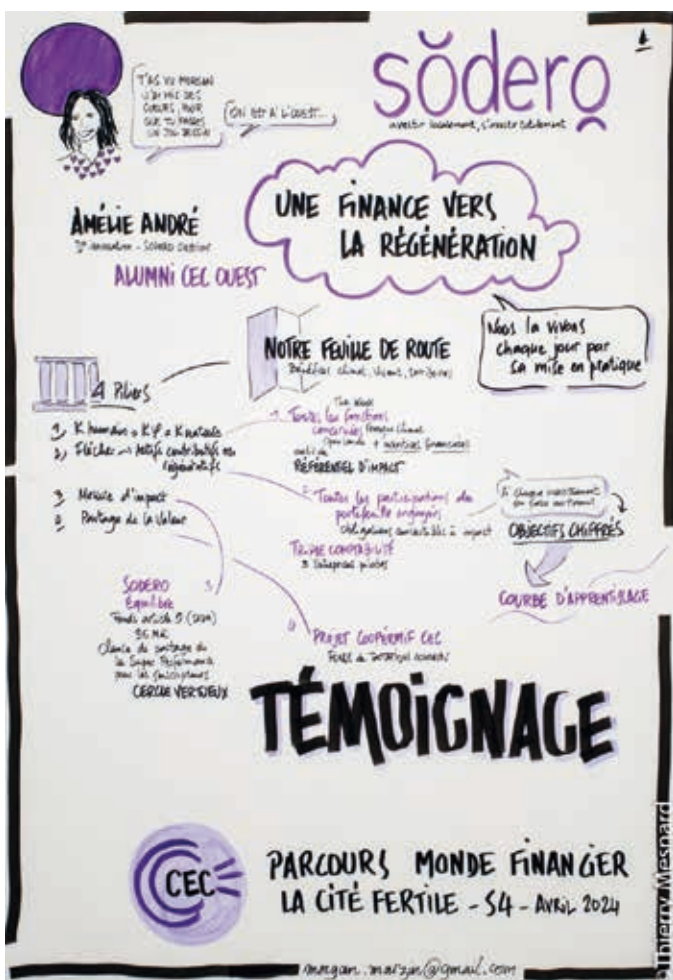 T'AS VU MORGAN
J'AI MIS DES
COEURS POUR
QUE TU FASSES
UN JOLI DESSIN
ON EST À L'OUEST...
sodero
investir localement, s'investir totalement
AMÉLIE ANDRÉ
ALUMNI CEC OUEST
UNE FINANCE VERS
LA RÉGÉNÉRATION
Nous la vivons
chaque jour par
sa mise en pratique
NOTRE FEUILLE DE ROUTE
Bénéfices climat, vivant, territoires
4 Piliers
1, K humain = K = K naturel
2, Flécher → Actifs contributifs ou
régénératifs
3 Mesure d'impact
4 Partage de la valeur
1, Toutes les fonctions
concernées
RÉFÉRENTIEL D'IMPACT
2, Toutes les participations du
portefeuille engagées
obligations convertibles à impact
TRIPLE COMPTABILITÉ
3 entreprises pilotes
OBJECTIFS CHIFFRÉS
COURBE D'APPRENTISSAGE
SODERO 3,
Équilibre
Fonds article 9
Clause de partage de
la Super Performance
pour les souscripteurs
CERCLE VERTUEUX
4, PROJET COOPÉRATIF CEC
TÉMOIGNAGE
CEC
PARCOURS MONDE FINANCIER
LA CITÉ FERTILE - S4 - AVRIL 2024
morgan.marzin@gmail.com
Thierry Mesnard